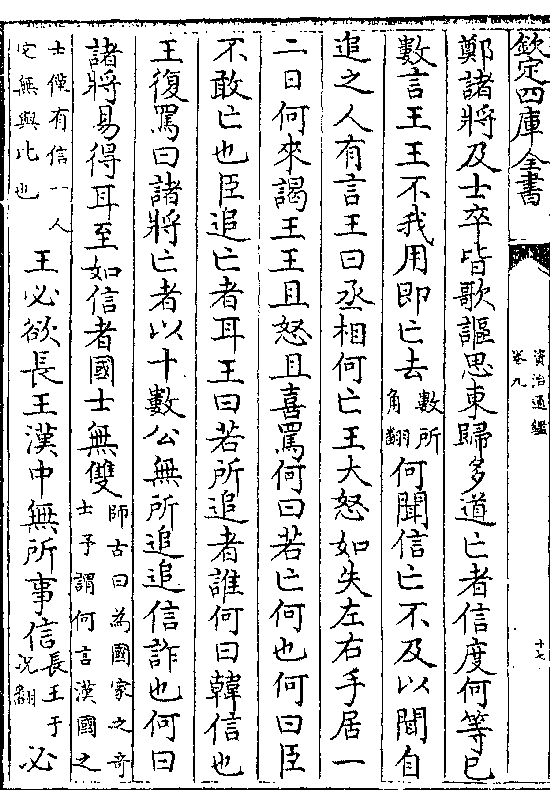 欽定四庫全書
資治通鑑
卷九
十七
鄭諸將及士卒皆歌謳思東歸多道亡者信度何等已
數言王王不我用即亡去數所角翻何聞信亡不及以聞自
追之人有言王曰丞相何亡王大怒如失左右手居一
二日何來謁王王且怒且喜罵何曰若亡何也何曰臣
不敢亡也臣追亡者耳王曰若所追者誰何曰韓信也
王復罵曰諸將亡者以十數公無所追追信詐也何曰
諸將易得耳至如信者國士無雙師古曰為國家之奇士予謂何言漢國之
士僅有信一人它無與比也王必欲長王漢中無所事信長王于況翻必